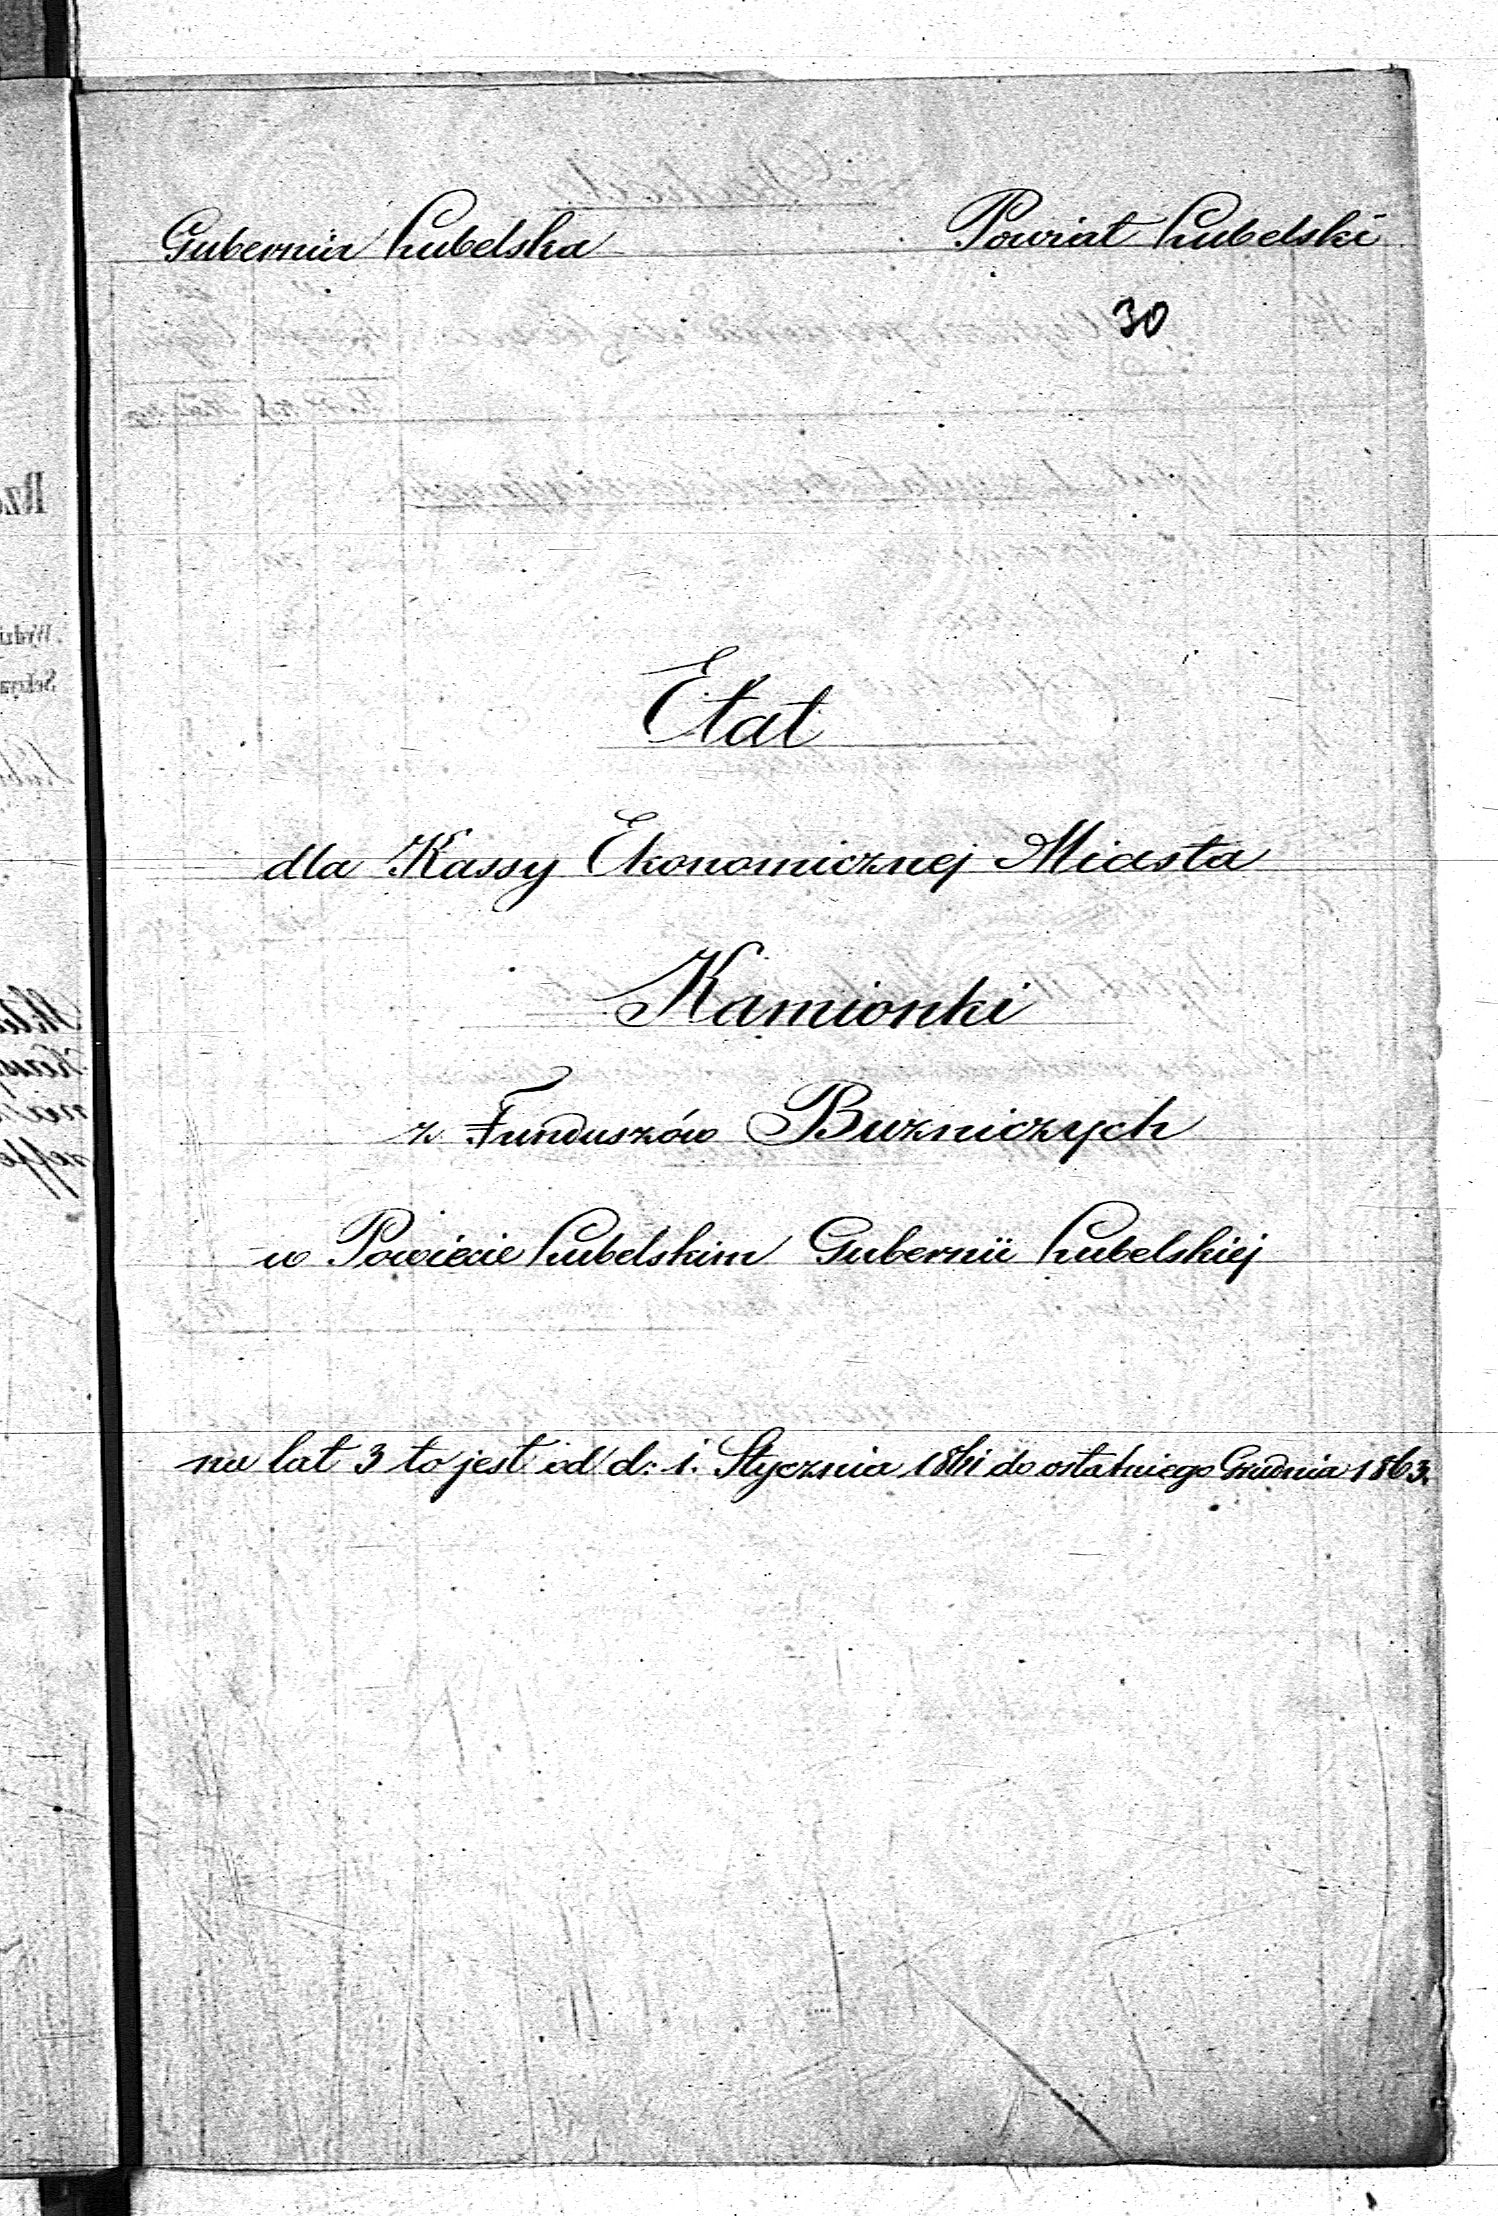 Gubernia Lubelska Powiat Lubelski
30
Etat
dla Kassy Ekonomicznej Miasta
Kamionki
z Funduszów Bużniczych
w Powiecie Lubelskim Gubernii Lubelskiej
na lat 3 to jest od d: 1. Stycznia 1861 do ostatniego Grudnia 1863.